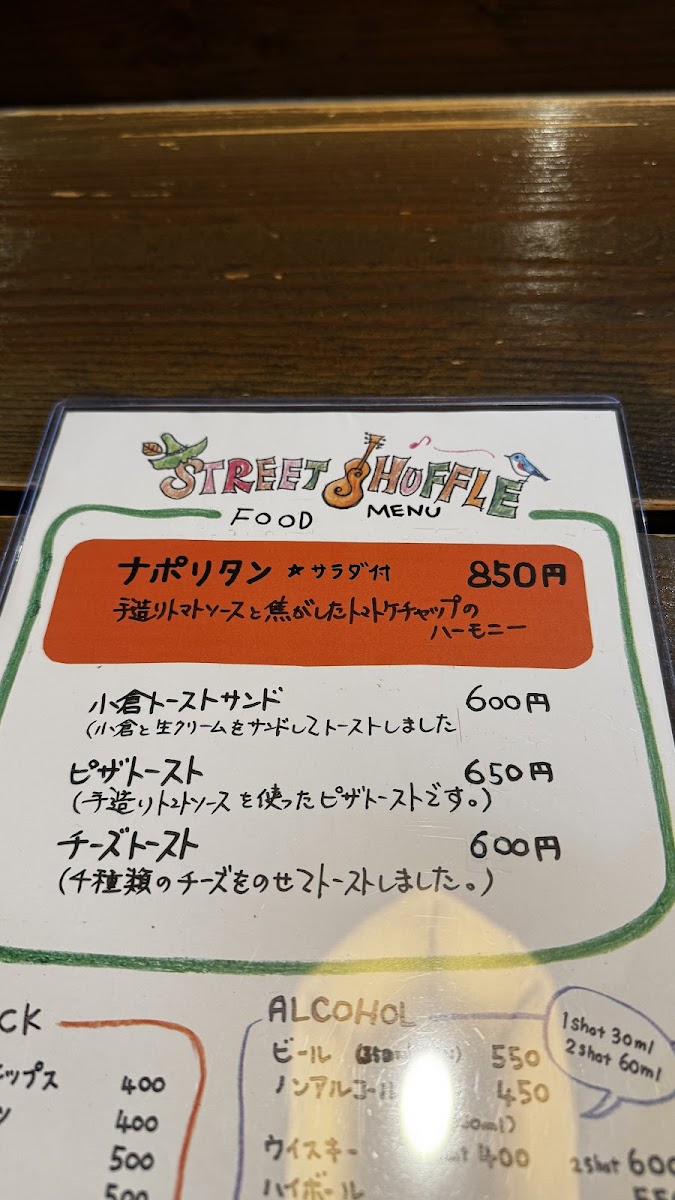 STREET SHUFFLE
FOOD MENU
ナポリタン ★サラダ付 850円
手造りトマトソースと焦がしたトマトケチャップの
ハーモニー
小倉トーストサンド 600円
(小倉と生クリームをサンドしてトーストしました
ピザトースト 650円
(手造りトマトソースを使ったピザトーストです。)
チーズトースト 600円
(4種類のチーズをのせてトーストしました。)
CK
ップス 400
ン 400
500
500
ALCOHOL
1shot 30ml
2shot 60ml
ビール 550
ノンアルコール 450
ウイスキー 400 2shot 600
ハイボール